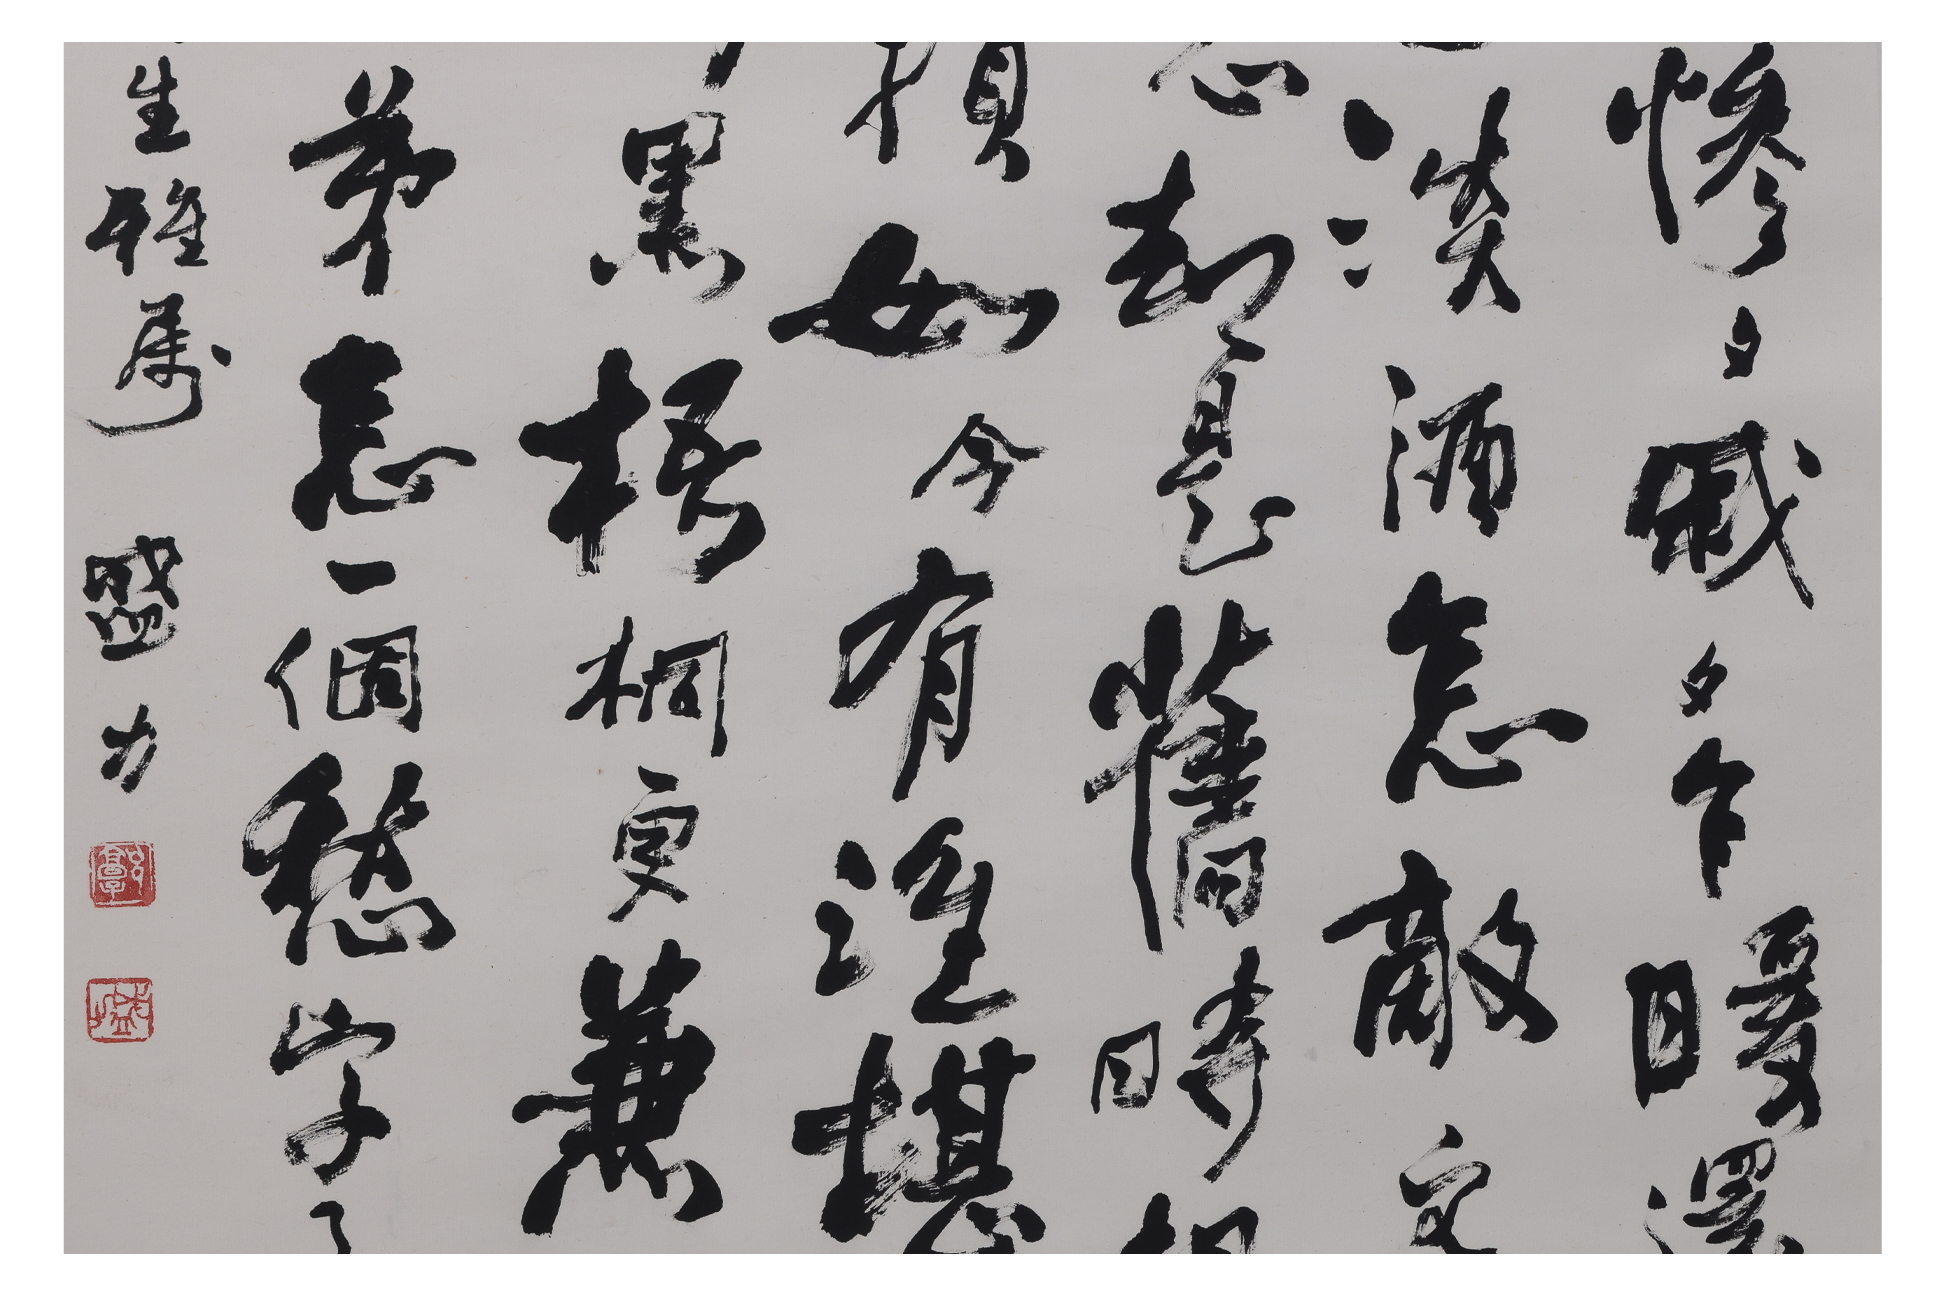 惨々戚々乍暖還
淡酒怎敵它
却是舊時相
損如今有誰堪
黑梧桐更兼
第怎一個愁字了
生雅属 盛力